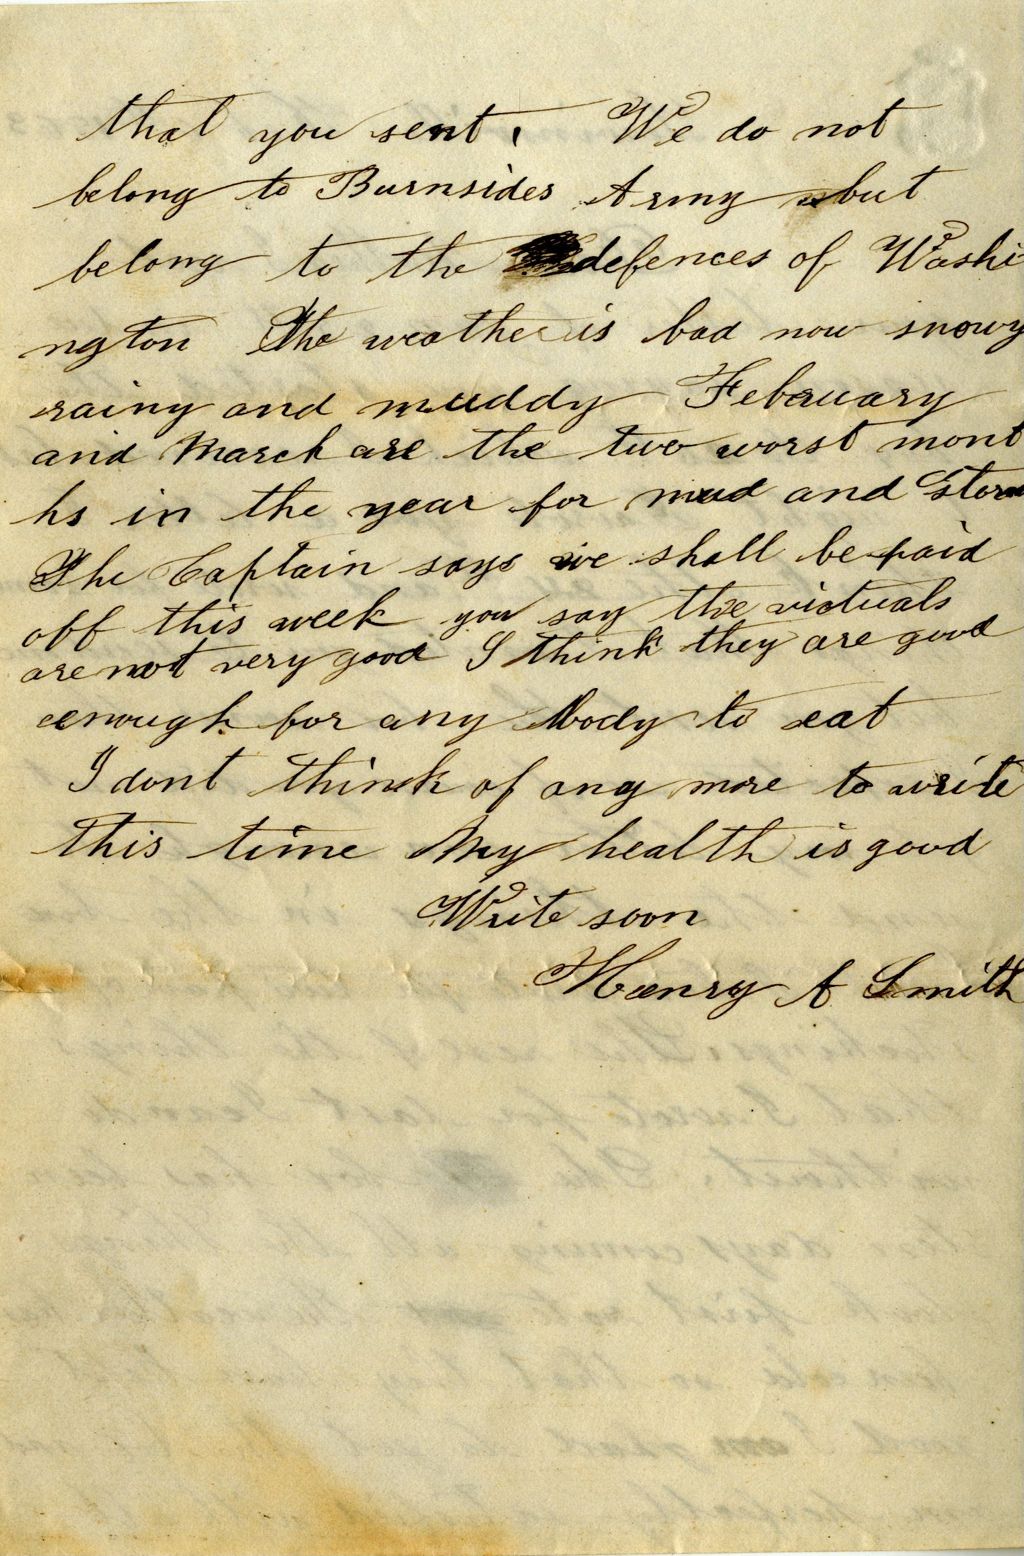 that you sent. We do not
belong to Burnsides Army but
belong to the defences of Washi
ngton The weather is bad now snowy
rainy and muddy February
and March are the two worst mont
hs in the year for mud and storm
The Captain says we shall be paid
off this week you say the victuals
are not very good I think they are good
enough for any body to eat
I dont think of any more to write
this time My health is good
Write soon
Henry A Smith